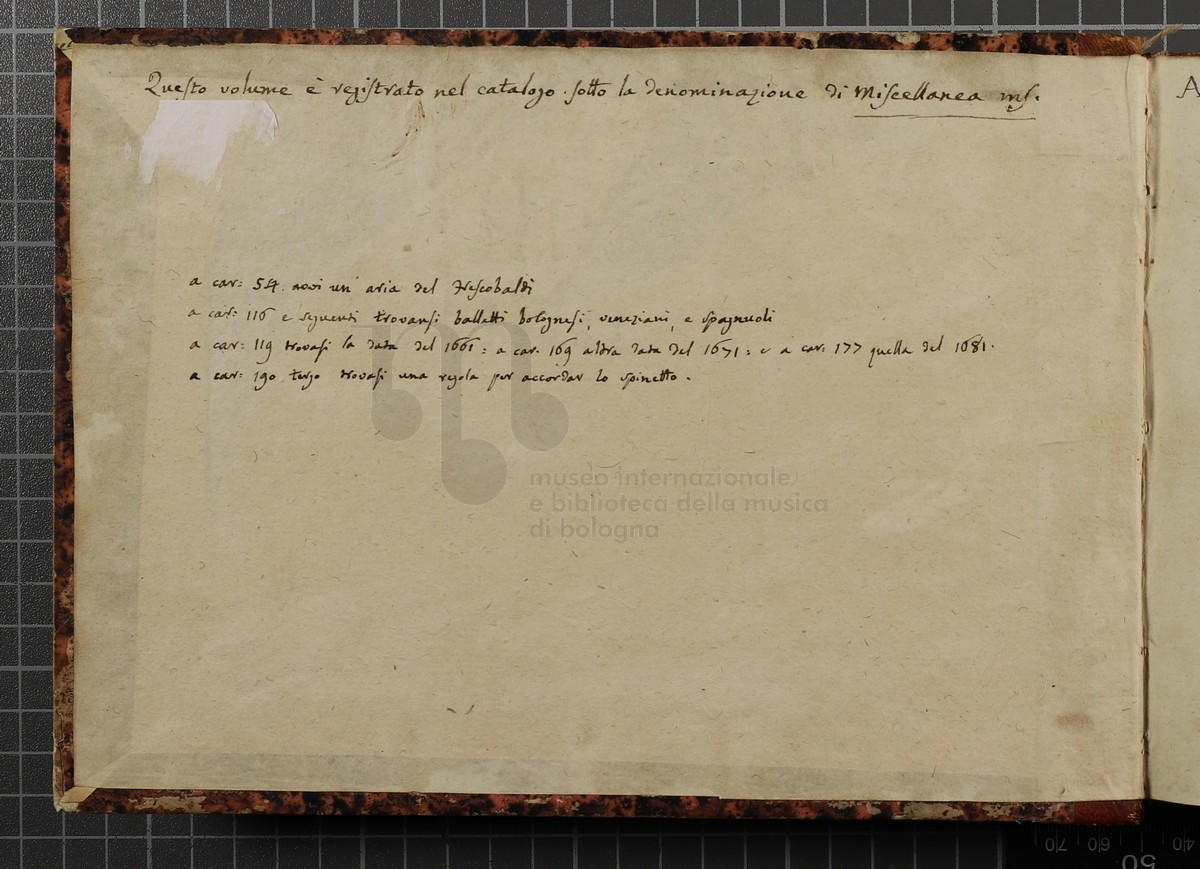 Questo volume è registrato nel catalogo sotto la denominazione di Miscellanea ms.
a car: 54. avvi un' aria del Frescobaldi
a car: 116 e seguenti trovansi balletti bolognesi, veneziani, e spagnuoli
a car: 119 trovasi la data del 1661: a car. 169 altra data del 1671: e a car: 177 quella del 1681.
a car: 190 tergo trovasi una regola per accordar lo spinetto.
museo internazionale
e biblioteca della musica
di bologna
A
70
60
50
40